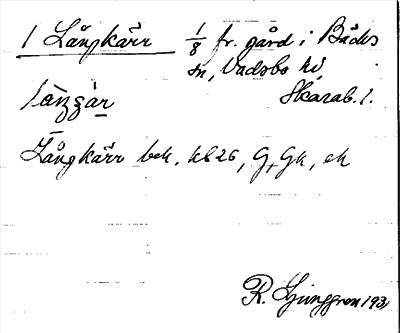 1 Långkärr 1/8 fr. gård i Bäcks
sn, Vadsbo hd,
Skarab. l.
Långkärr bek. kb 26, G, Gk, ek
R. Ljunggren 193